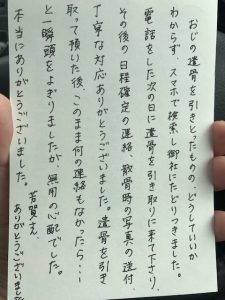 おじの遺骨を引きとったものの、どうしていいか
わからず、スマホで検索し御社にたどりつきました。
電話をした次の日に遺骨を引き取りに来て下さり、
その後の日程確定の連絡、散骨時の写真の送付、
丁寧な対応ありがとうございました。遺骨を引き
取って頂いた後、このまま何の連絡もなかったら…
と一瞬頭をよぎりましたが、無用の心配でした。
本当にありがとうございました。
若賀さん
ありがとうございました